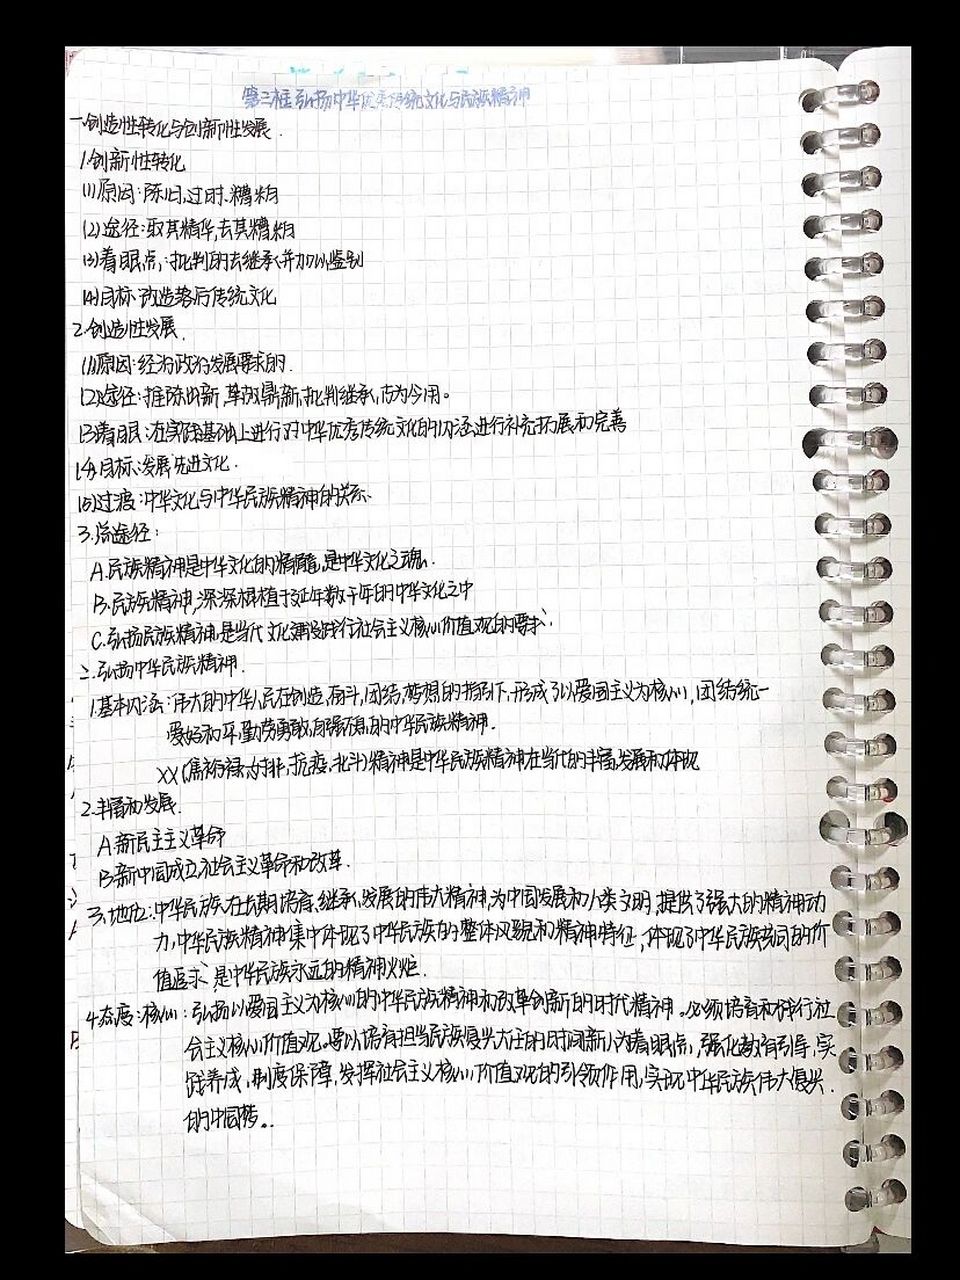 第二框弘扬中华优秀传统文化与民族精神
一.创造性转化与创新性发展.
1.创新性转化
(1)原因:陈旧,过时、糟粕
(2)途径:取其精华,去其糟粕
(3)着眼点:批判的去继承,并加以鉴别
(4)目标:改造落后传统文化
2.创造性发展.
(1)原因:经济政治发展要求的.
(2)途径:推陈出新,革故鼎新,批判继承,古为今用。
(3)着眼:在实践基础上进行对中华优秀传统文化的内涵进行补充拓展和完善
(4)目标:发展先进文化.
(5)过渡:中华文化与中华民族精神的关系.
3.总途径:
A.民族精神是中华文化的精髓,是中华文化之魂.
B.民族精神,深深根植于延绵数千年的中华文化之中
C.弘扬民族精神,是当代文化建设践行社会主义核心价值观的要求.
二.弘扬中华民族精神.
1.基本内涵:伟大的中华人民在创造,奋斗,团结,梦想的指引下,形成了以爱国主义为核心,团结统一
爱好和平,勤劳勇敢,自强不息的中华民族精神.
XX(焦裕禄,女排,抗疫,北斗)精神是中华民族精神在当代的丰富,发展和体现
2.丰富和发展.
A.新民主主义革命
B.新中国成立,社会主义革命和改革.
3.地位:中华民族在长期培育、继承、发展的伟大精神,为中国发展和人类文明,提供了强大的精神动
力,中华民族精神集中体现了中华民族的整体风貌和精神特征,体现了中华民族共同的价
值追求,是中华民族永远的精神火炬.
4.态度:核心:弘扬以爱国主义为核心的中华民族精神和改革创新的时代精神。必须培育和践行社
会主义核心价值观。要以培育担当民族复兴大任的时间新人为着眼点,强化教育引导,实
践养成,制度保障,发挥社会主义核心价值观的引领作用,实现中华民族伟大复兴.
的中国梦。.